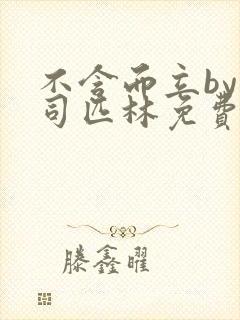 不念而立by
司匹林免费
滕鑫曜